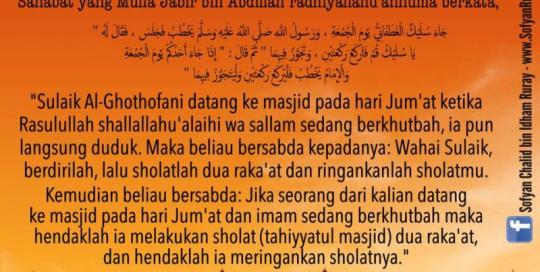 Sahabat yang Mulia Jabir bin Abdillah radhiyallahu'anhuma berkata,
جَاءَ سُلَيْكٌ الْغَطَفَانِيُّ يَوْمَ الْجُمُعَةِ ، وَرَسُولُ اللَّهِ صَلَّى اللَّهُ عَلَيْهِ وَسَلَّمَ يَخْطُبُ فَجَلَسَ ، فَقَالَ لَهُ "
يَا سُلَيْكُ قُمْ فَارْكَعْ رَكْعَتَيْنِ ، وَتَجَوَّزْ فِيهِمَا " ثُمَّ قَالَ : " إِذَا جَاءَ أَحَدُكُمْ يَوْمَ الْجُمُعَةِ
وَالْإِمَامُ يَخْطُبُ فَلْيَرْكَعْ رَكْعَتَيْنِ وَلْيَتَجَوَّزْ فِيهِمَا "
"Sulaik Al-Ghothofani datang ke masjid pada hari Jum'at ketika
Rasulullah shallallahu'alaihi wa sallam sedang berkhutbah, ia pun
langsung duduk. Maka beliau bersabda kepadanya: Wahai Sulaik,
berdirilah, lalu sholatlah dua raka'at dan ringankanlah sholatmu.
Kemudian beliau bersabda: Jika seorang dari kalian datang
ke masjid pada hari Jum'at dan imam sedang berkhutbah maka
hendaklah ia melakukan sholat (tahiyyatul masjid) dua raka'at,
dan hendaklah ia meringankan sholatnya."
Sofyan Chalid bin Idham Ruray - www.SofyanRu